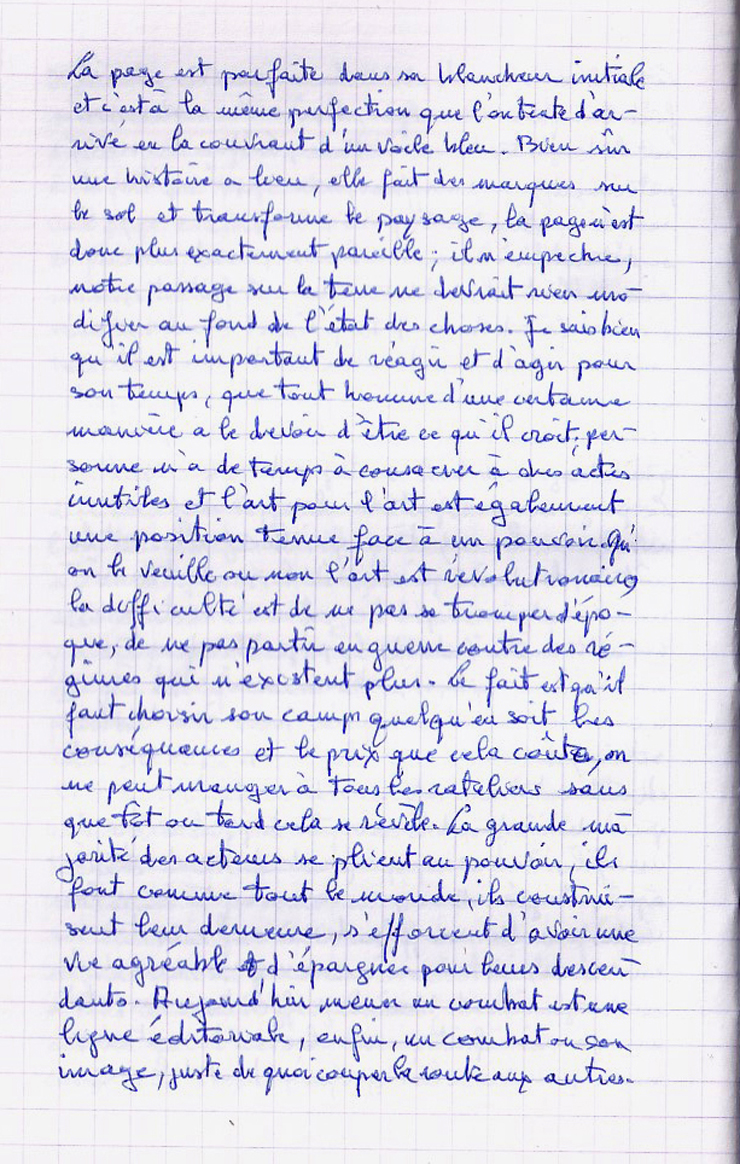 La page est parfaite dans sa blancheur initiale
et c'est à la même perfection que l'on tente d'ar-
rivé en la couvrant d'un voile bleu. Bien sûr
une histoire a lieu, elle fait des marques sur
le sol et transforme le paysage, la page n'est
donc plus exactement pareille ; il n'empêche,
notre passage sur la terre ne devrait rien mo-
difier au fond de l'état des choses. Je sais bien
qu'il est important de réagir et d'agir pour
son temps, que tout homme d'une certaine
manière a le devoir d'être ce qu'il croit, per-
sonne n'a de temps à consacrer à des actes
inutiles et l'art pour l'art est également
une position tenue face à un pouvoir. Qu'
on le veuille ou non l'art est révolutionaire,
la difficulté est de ne pas se tromper d'épo-
que, de ne pas partir en guerre contre des ré-
gimes qui n'existent plus. Le fait est qu'il
faut choisir son camp quelqu'en soit les
conséquences et le prix que cela coûte, on
ne peut manger à tous les rateliers sans
que tôt ou tard cela se révèle. La grande ma
jorité des acteurs se plient au pouvoir, ils
font comme tout le monde, ils construi-
sent leur demeure, s'efforcent d'avoir une
vie agréable et d'épargner pour leurs descen
dants. Aujourd'hui mener un combat est une
ligne éditoriale, enfin, un combat ou son
image, juste de quoi couper la route aux autres.